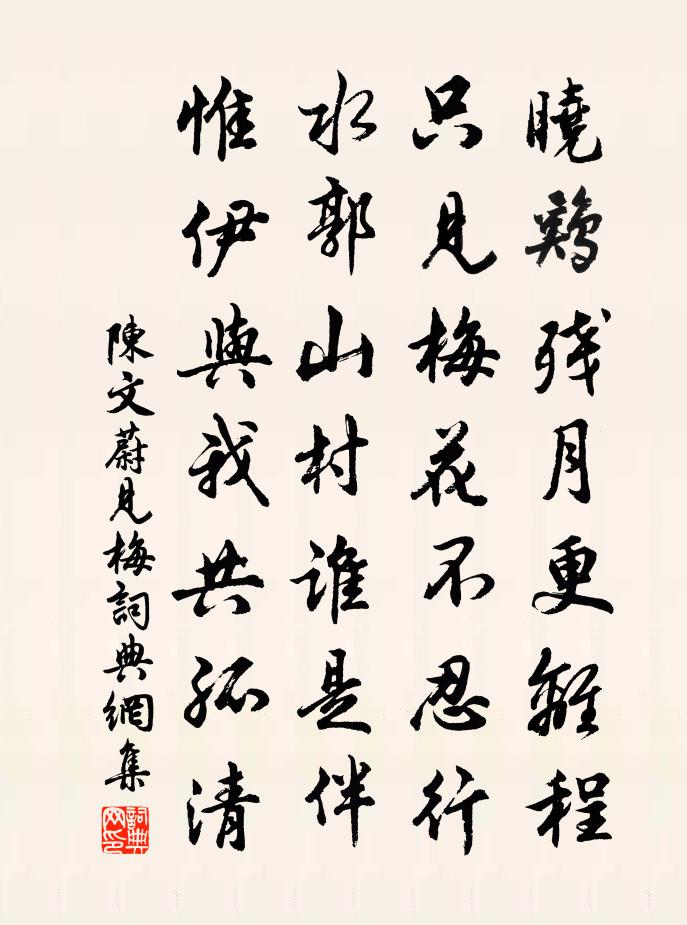 曉鷄残月更離程
只見梅花不忍行
水郭山村誰是伴
惟伊與我共孤清
陳文蔚見梅詞典網集
詞典網印